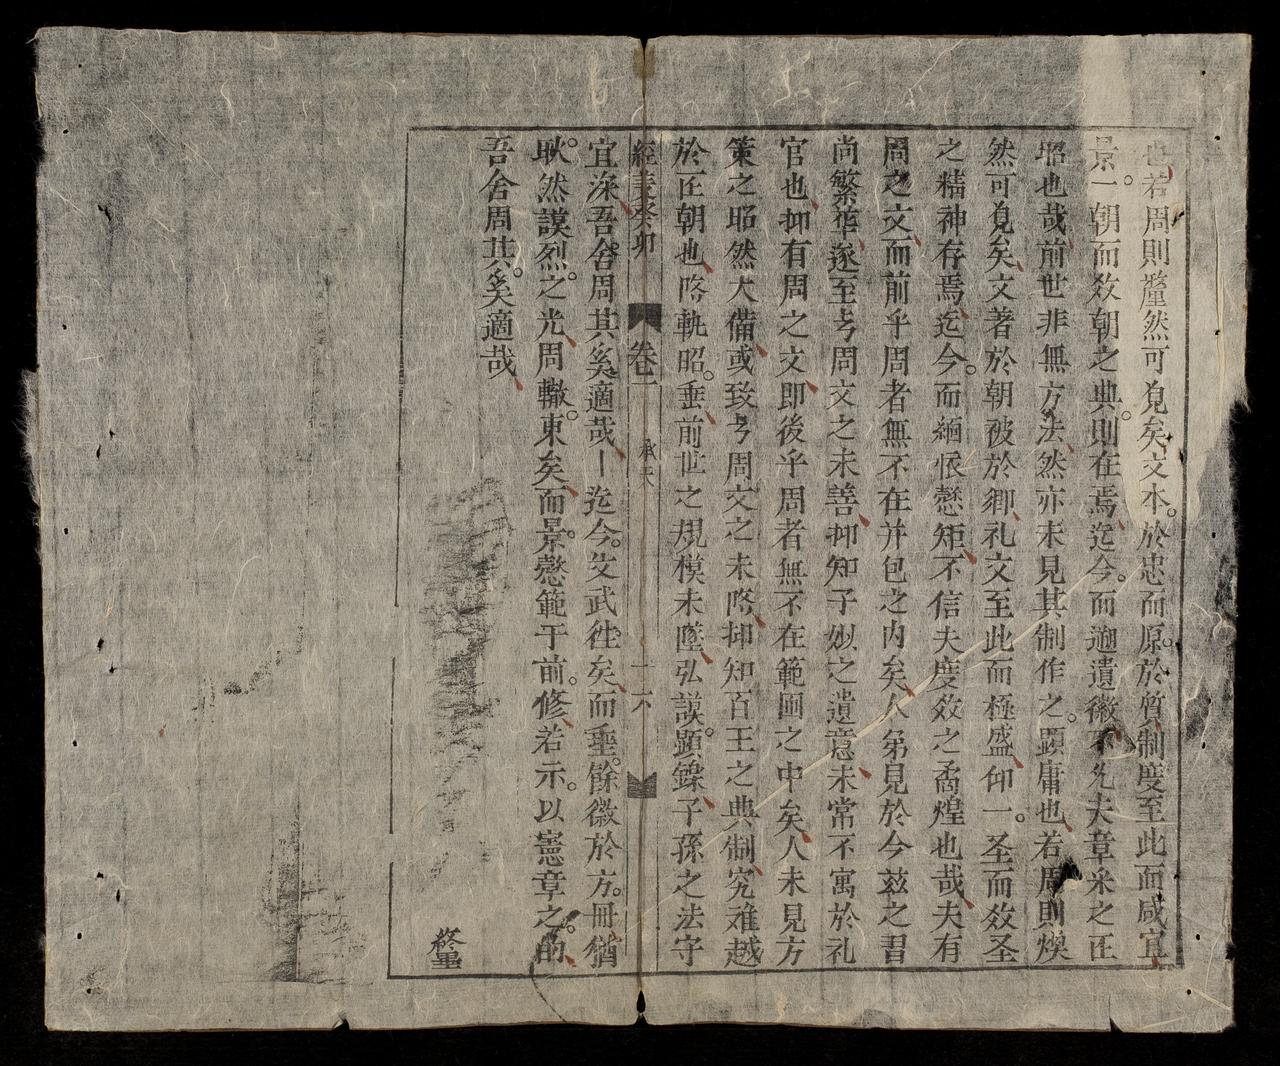 也若周則釐然可見矣文本於忠而原於質制度至此而咸宜
景一朝而效朝之典則在焉迄今而遡遺徽不凢夫章采之正
昭也哉前世非無方法然亦未見其制作之顕庸也若周則煥
然可見矣文著於朝被於卿礼文至此而極盛仰一圣而效圣
之精神存焉迄今而緬恨愆矩不信夫度效之矞煌也哉夫有
周之文而前乎周者無不在并包之内矣人第見於今玆之習
尚繁华遂至㝵周文之未善抑知子姒之遺意未常不寓於礼
官也抑有周之文即後乎周者無不在範圍之中矣人未見方
策之昭然大備或致㝵周文之未略抑知百王之典制究难越
於正朝也略軌昭垂前世之規模未墜弘謨顕鑠子孫之法守
經義癸卯 卷一 承天 十六
宜深吾舍周其奚適哉丨迄今文武徃矣而垩餘徽於方冊猶
耿然謨烈之光周轍東矣而景愆範于前修若示以憲章之的
吾舍周其奚適哉